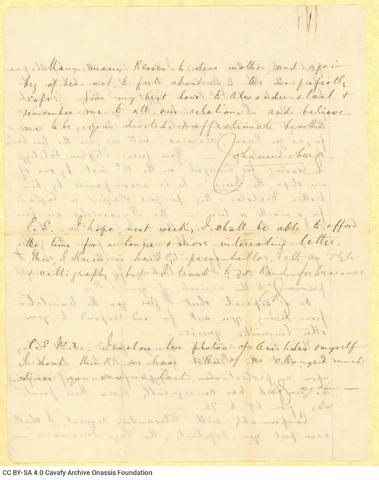 Many many kisses to dear mother and again
beg of her not to fret about me. We're perfectly
safe. Give my best love to Alexander & Paul &
remember me to all our relations and believe
me to be your devoted & affectionate brother
John
P.S. I hope next week, I shall be able to afford
the time for a longer & more interesting letter.
This, I know is hardly passable, both in style
& calligraphy but I trust to your kind forbearance
P.S. No. 2. I enclose two photos of Aristides & myself
I don't think we have either of us changed much
since you saw us last
CC BY-SA 4.0 Cavafy Archive Onassis Foundation